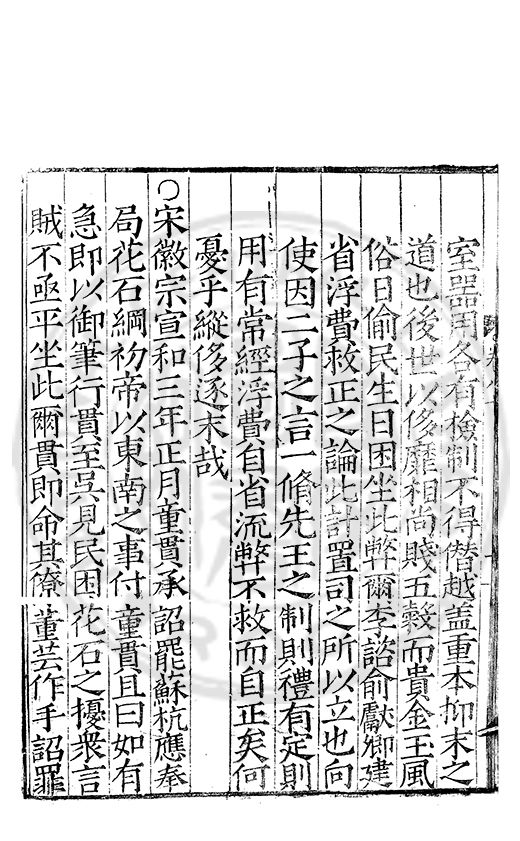 室器用各有檢制不得僭越盖重本抑末之
道也後世以侈靡相尚賤五穀而貴金玉風
俗日偷民生日困坐此弊爾李諮俞獻卿建
省浮費救正之論此計置司之所以立也向
使因二子之言一脩先王之制則禮有定則
用有常經浮費自省流弊不救而自正矣何
憂乎縱侈逐末哉
○宋徽宗宣和三年正月童貫承詔罷蘇杭應奉
局花石綱初帝以東南之事付童貫且曰如有
急即以御筆行貫至吳見民困花石之擾衆言
賊不亟平坐此爾貫即命其僚董芸作手詔罪